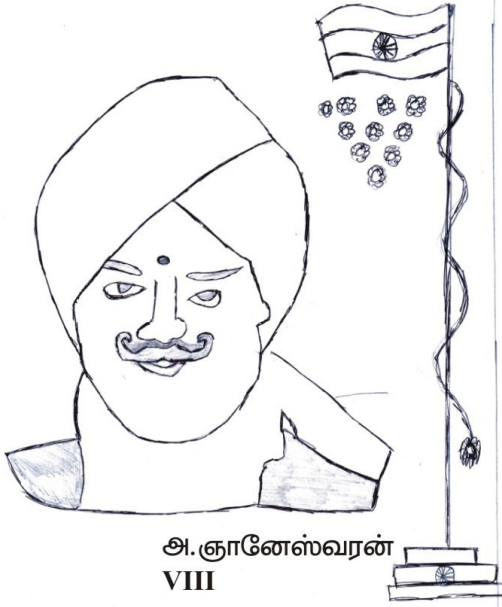 அ.ஞானேஸ்வரன்
VIII